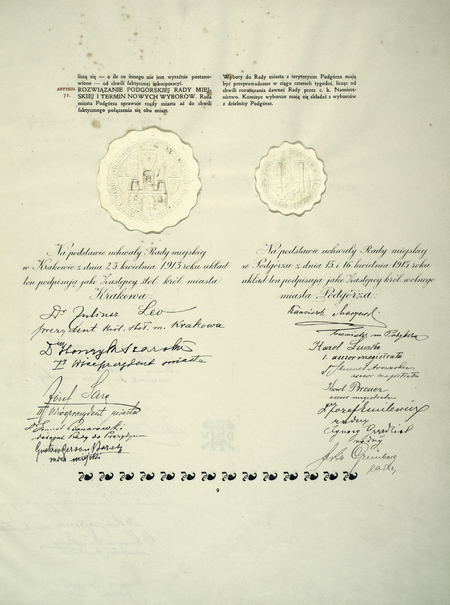 liczą się — o ile co innego nie jest wyraźnie postano-
wione — od chwili faktycznej inkorporacyi.
ARTYKUŁ
71.
ROZWIĄZANIE PODGÓRSKIEJ RADY MIEJ-
SKIEJ I TERMIN NOWYCH WYBORÓW. Rada
miasta Podgórza sprawuje rządy miasta aż do chwili
faktycznego połączenia się obu miast.
Wybory do Rady miasta z terytoryum Podgórza mają
być przeprowadzone w ciągu czterech tygodni, licząc od
chwili rozwiązania dawnej Rady przez c. k. Namiest-
nictwo. Komisye wyborcze mają się składać z wyborców
z dzielnicy Podgórze.
Na podstawie uchwały Rady miejskiej
w Krakowie z dnia 23 kwietnia 1913 roku układ
ten podpisują jako Zastępcy stoł. król. miasta
Krakowa:
Dr Juliusz Leo
prezydent król. stoł. m. Krakowa
Dr Henryk Szarski
I Wiceprezydent miasta
Józef Sare
III Wiceprezydent miasta
radca miejski
Na podstawie uchwały Rady miejskiej
w Podgórzu z dnia 15 i 16 kwietnia 1913 roku
układ ten podpisują jako Zastępcy król. wolnego
miasta Podgórza:
Franciszek Maryewski
Burmistrz m. Podgórza
Karol
I asesor magistratu
asesor magistratu
Karol
asesor magistratu
radny
radny
radny
9